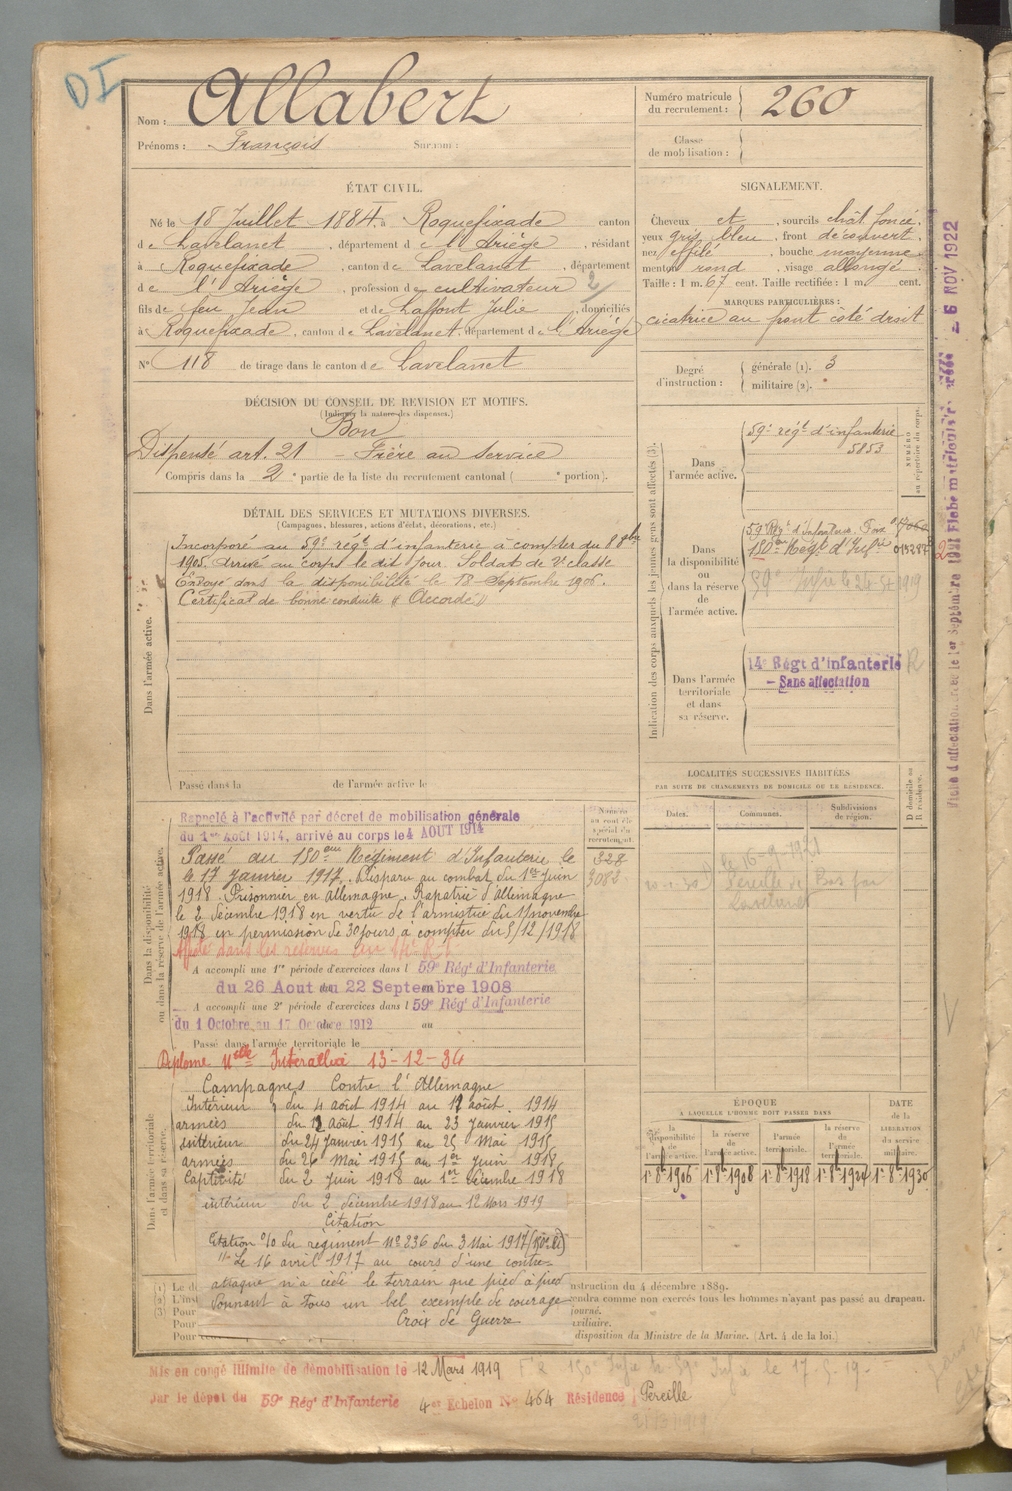 DI
Nom : Allabert
Prénoms : François Surnom :
Numéro matricule du recrutement : 260
Classe de mobilisation :
ÉTAT CIVIL.
Né le 18 Juillet 1884 à Roquefixade canton
de Lavelanet, département de l'Ariège, résidant
à Roquefixade, canton de Lavelanet, département
de l'Ariège, profession de cultivateur 2
fils de feu Jean et de Laffont Julie, domiciliés
à Roquefixade, canton de Lavelanet, département de l'Ariège
N° 118 de tirage dans le canton de Lavelanet
SIGNALEMENT.
Cheveux et, sourcils chât. foncé,
yeux gris bleu, front découvert,
nez effilé, bouche moyenne,
menton rond, visage allongé.
Taille : 1 m. 67 cent. Taille rectifiée : 1 m. cent.
MARQUES PARTICULIÈRES :
cicatrice au front coté droit
Degré d'instruction : générale (1). 3
militaire (2).
DÉCISION DU CONSEIL DE REVISION ET MOTIFS.
(Indiquer la nature des dispenses.)
Bon
Dispensé art. 21 – Frère au service
Compris dans la 2e partie de la liste du recrutement cantonal ( e portion).
DÉTAIL DES SERVICES ET MUTATIONS DIVERSES.
(Campagnes, blessures, actions d'éclat, décorations, etc.)
Dans l'armée active.
Incorporé au 59e régt d'infanterie à compter du 8 8bre
1905. Arrivé au corps le dit jour. Soldat de 2e classe
Envoyé dans la disponibilité le 18 Septembre 1906.
Certificat de bonne conduite « Accordé »
Passé dans la de l'armée active le
Indication des corps auxquels les jeunes gens sont affectés (3).
NUMÉRO au répertoire du corps.
Dans l'armée active.
59e régt d'infanterie
5853
Dans la disponibilité ou dans la réserve de l'armée active.
59 Régt d'Infanterie
150e Régt d'Infie 019287
59e Infie
Dans l'armée territoriale et dans sa réserve.
14e Régt d'infanterie R
– Sans affectation
LOCALITÉS SUCCESSIVES HABITÉES
PAR SUITE DE CHANGEMENTS DE DOMICILE OU DE RÉSIDENCE.
Dates. Communes. Subdivisions de région. D domicile ou R résidence.
le 16-9-1921
Péreille
Lavelanet
Dans la disponibilité ou dans la réserve de l'armée active.
Numéro au contrôle spécial du recrutement.
328
3082
Rappelé à l'activité par décret de mobilisation générale
du 1er Août 1914, arrivé au corps le 4 AOUT 1914
Passé au 150eme Régiment d'Infanterie le
le 17 Janvier 1917. Disparu au combat du 1er Juin
1918. Prisonnier en Allemagne. Rapatrié d'Allemagne
le 2 décembre 1918 en vertu de l'armistice du 11 novembre
1918 en permission de 30 jours à compter du 5/12/1918
Affecté dans les réserves au 14e R.I.
A accompli une 1re période d'exercices dans l 59e Régt d'Infanterie
du 26 Aout au 22 Septembre 1908
A accompli une 2e période d'exercices dans l 59e Régt d'Infanterie
du 1 Octobre au 17 Octobre 1912 au
Passé dans l'armée territoriale le
Diplome Mlle Interalliée 13-12-34
Dans l'armée territoriale et dans sa réserve.
Campagnes Contre l'Allemagne
Intérieur du 4 août 1914 au 11 août 1914
armées du 12 août 1914 au 23 Janvier 1915
intérieur du 24 janvier 1915 au 25 Mai 1915
armées du 26 Mai 1915 au 1er Juin 1918
Captivité du 2 Juin 1918 au 1er décembre 1918
intérieur du 2 décembre 1918 au 12 Mars 1919
Citation
Citation o/o du régiment N° 236 du 3 Mai 1917 (150e RI)
"Le 16 avril 1917 au cours d'une contre-
attaque n'a cédé le terrain que pied à pied
donnant à tous un bel exemple de courage
Croix de Guerre
ÉPOQUE
À LAQUELLE L'HOMME DOIT PASSER DANS
la disponibilité de l'armée active. la réserve de l'armée active. l'armée territoriale. la réserve de l'armée territoriale.
DATE de la LIBÉRATION du service militaire.
1er 8bre 1906 1er 8bre 1908 1er 8bre 1918 1er 8bre 1924 1er 8bre 1930
(1) Le d
(2) L'inst
(3) Pour
Pour
Pour
nstruction du 4 décembre 1889.
endra comme non exercés tous les hommes n'ayant pas passé au drapeau.
journé.
xiliaire.
disposition du Ministre de la Marine. (Art. 4 de la loi.)
Mis en congé illimité de démobilisation le 12 Mars 1919
par le dépôt du 59e Régt d'Infanterie 4er Echelon No 464 Résidence Péreille
6 NOV 1922